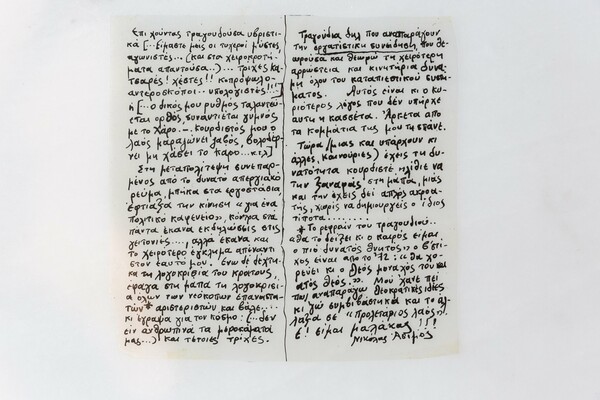 Επι χούντας τραγουδούσα υβριστι-
κά [... είμαστε μεις οι τυχεροί μύστες,
αγωνιστές ... (και στα χειροκροτή-
ματα απαντούσα..)... τρίχες κα-
τσαρές! χέστες!! κοπρόψαλο-
αντεροσκόποι.. υπολογιστές!!!]
ή [... ο δικός μου ρυθμός ταλαντεύ-
εται ορθός συναντιέται γυμνός
με το Χάρο... κουρδιστός μου ο
λαός μαραζώνει ζαβός, βολοδέρ-
νει μη χάσει το κάρο... κ.τ.λ]
Στη μεταπολίτεψη συνεπαρ-
μένος από το δυνατό απεργιακό
ρεύμα, μπήκα στα εργοστάσια
έφτιαξα την κίνηση «για ένα
πολιτικό καφενείο», κόντρα στα
πάντα έκανα εκδηλώσεις στις
γειτονιές...., αλλά έκανα και
το χειρότερο έγκλημα απέναντι
στον εαυτό μου. ενώ δε δέχτη-
κα τη λογοκρισία του κράτους,
έφαγα στη μάπα τη λογοκρισί-
α όλων των νεόκοπων επαναστα-
τών * αριστεριστών και βάλε....
κι έγραψα για τον κόσμο: (...δεν
είν ανθρωπινά τα μεροκάματά
μας...)! και τέτοιες τρίχες.
Τραγούδια δηλ που αναπαράγουν
την εργατίστικη συνείδηση, που θε-
ωρούσα και θεωρώ τη χειρότερη
αρρώστεια και κινητήρια δύνα-
μη όλου του καταπιεστικού συστή-
ματος. Αυτός είναι κι ο κυ-
ριότερος λόγος που δεν υπήρχε
αυτή η κασσέτα. Αρκετά απο
τα κομμάτια της μου τη σπάνε.
Τώρα (μιας και υπάρχουν κι
άλλες, καινούριες) έχεις τη δυ-
νατότητα κουρδιστέ ηλίθιε να
την ξαναφάς στη μάπα, μιας
και την έχεις δει απλός ακροα-
τής, χωρίς να δημιουργείς ο ίδιος
τίποτα........
* Το ρεφραίν του τραγουδιού..
«θα το δείξει κι ο καιρός είμαι,
ο πιο δυνατός θνητός» ο στί-
χος είναι απο το '72: «θα χο-
ρεύει κι ο θεός μοναχός του και
αυτός θεός.». Μού χανε πει
πως αναπαράγω θεοκρατικές ιδέες
κι γώ συμβιβάστηκα και το άλ-
λαξα σε "προλετάριος λαός".
Ε! είμαι μαλάκας!!!
Νικόλας Άσιμος